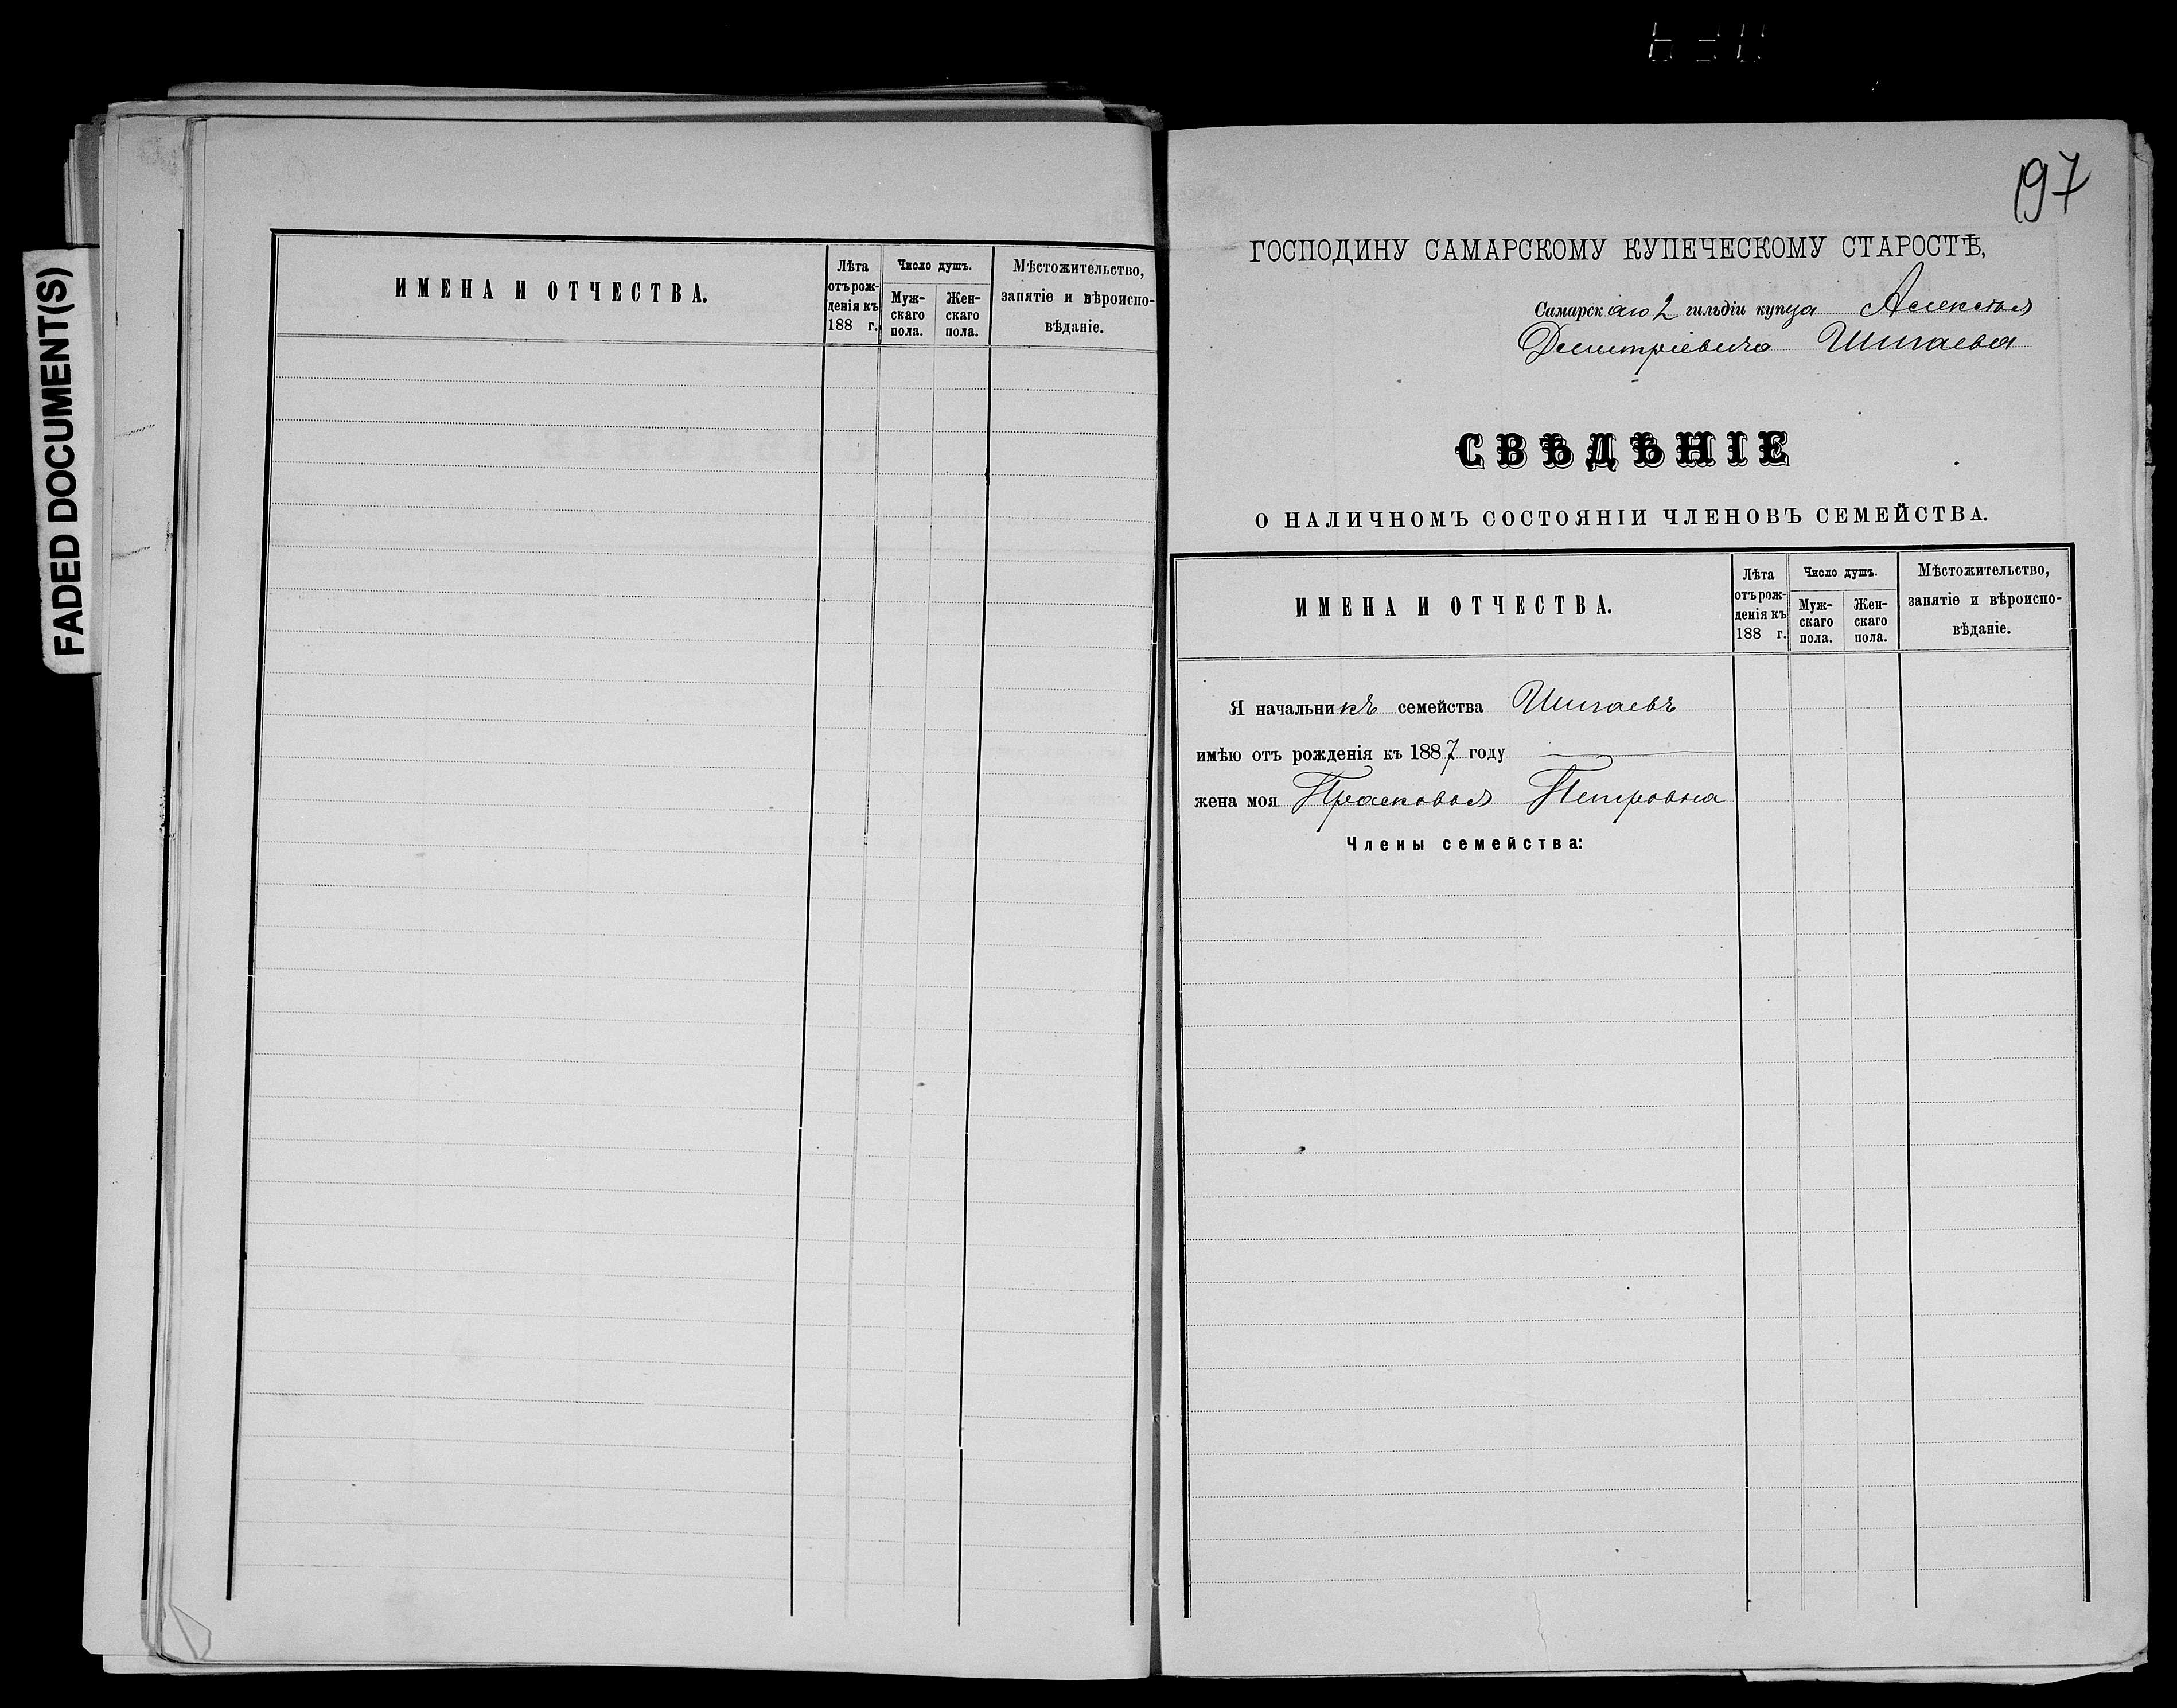 FADED DOCUMENT(S)
ИМЕНА И ОТЧЕСТВА.
Лѣта
отъ рож-
денія къ
188 г.
Число душъ.
Муж-
скаго
пола.
Жен-
скаго
пола.
Мѣстожительство,
занятіе и вѣроиспо-
вѣданіе.
197
ГОСПОДИНУ САМАРСКОМУ КУПЕЧЕСКОМУ СТАРОСТѢ,
Самарскаго 2 гильдіи купца Алексѣя
Дмитріевича Шигаева
СВѢДѢНІЕ
О НАЛИЧНОМЪ СОСТОЯНІИ ЧЛЕНОВЪ СЕМЕЙСТВА.
ИМЕНА И ОТЧЕСТВА.
Лѣта
отъ рож-
денія къ
188 г.
Число душъ.
Муж-
скаго
пола.
Жен-
скаго
пола.
Мѣстожительство,
занятіе и вѣроиспо-
вѣданіе.
Я начальникъ семейства Шигаевъ
имѣю отъ рожденія къ 1887 году
жена моя Прасковья Петровна
Члены семейства: